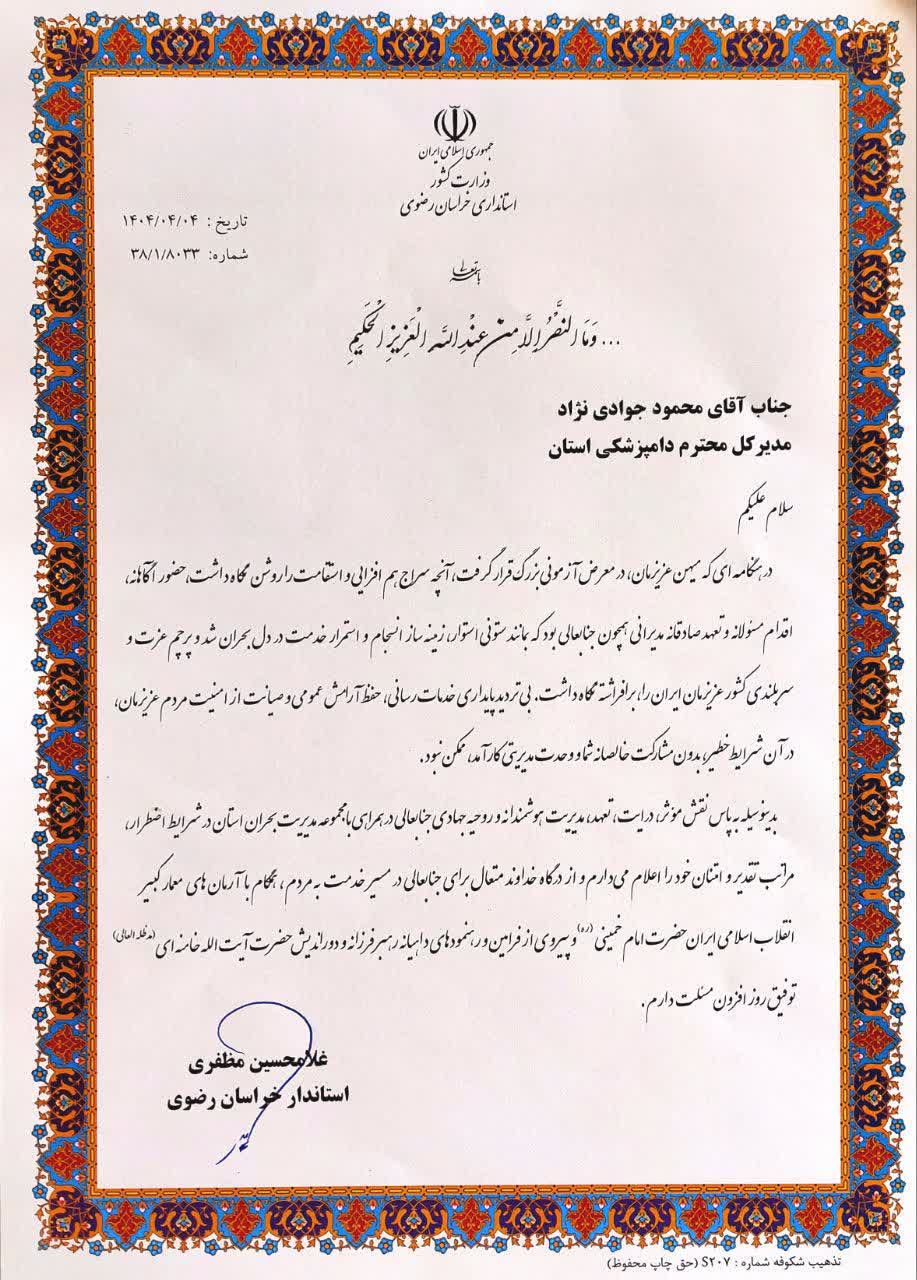 جمهوری اسلامی ایران
وزارت کشور
استانداری خراسان رضوی
تاریخ : ۱۴۰۴/۰۴/۰۴
شماره: ۳۸/۱/۸۰۳۳
باسمه تعالی
... وَمَا النَّصْرُ إِلَّا مِنْ عِنْدِ اللَّهِ الْعَزِيزِ الْحَكِيمِ
جناب آقای محمود جوادی نژاد
مدیرکل محترم دامپزشکی استان
سلام علیکم
در هنگامه ای که میهن عزیزمان، در معرض آزمونی بزرگ قرار گرفت، آنچه سراج هم افزایی و استقامت را روشن نگاه داشت، حضور آگاهانه،
اقدام مسئولانه و تعهد صادقانه مدیرانی همچون جنابعالی بود که بمانند ستونی استوار، زمینه ساز انسجام و استمرار خدمت در دل بحران شد و پرچم عزت و
سربلندی کشور عزیزمان ایران را، برافراشته نگاه داشت. بی تردید پایداری خدمات رسانی، حفظ آرامش عمومی و صیانت از امنیت مردم عزیزمان،
در آن شرایط خطیر، بدون مشارکت خالصانه شما و وحدت مدیریتی کارآمد، ممکن نبود.
بدینوسیله به پاس نقش مؤثر، درایت، تعهد، مدیریت هوشمندانه و روحیه جهادی جنابعالی در همراهی با مجموعه مدیریت بحران استان در شرایط اضطرار،
مراتب تقدیر و امتنان خود را اعلام می‌دارم و از درگاه خداوند متعال برای جنابعالی در مسیر خدمت به مردم، همگام با آرمان های معمار کبیر
انقلاب اسلامی ایران حضرت امام خمینی (ره) و پیروی از فرامین و رهنمودهای داهیانه رهبر فرزانه و دوراندیش حضرت آیت الله خامنه ای (مدظله العالی)
توفیق روز افزون مسئلت دارم.
غلامحسین مظفری
استاندار خراسان رضوی
تذهیب شکوفه شماره : S۲۰۷ (حق چاپ محفوظ)